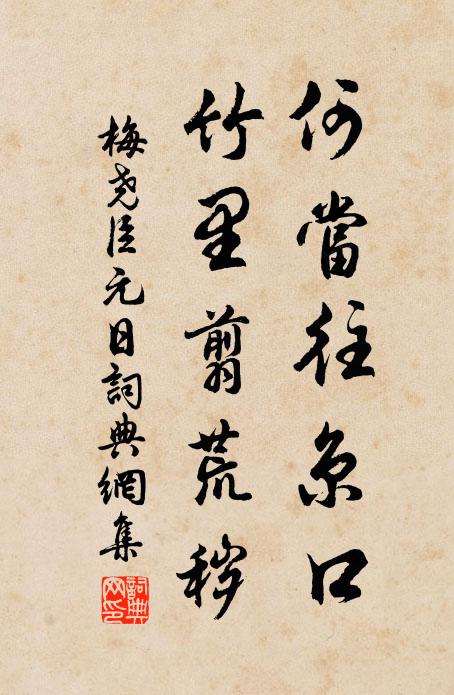 何當往京口
竹里翦荒穢
梅堯臣元日詞典網集
詞典網印